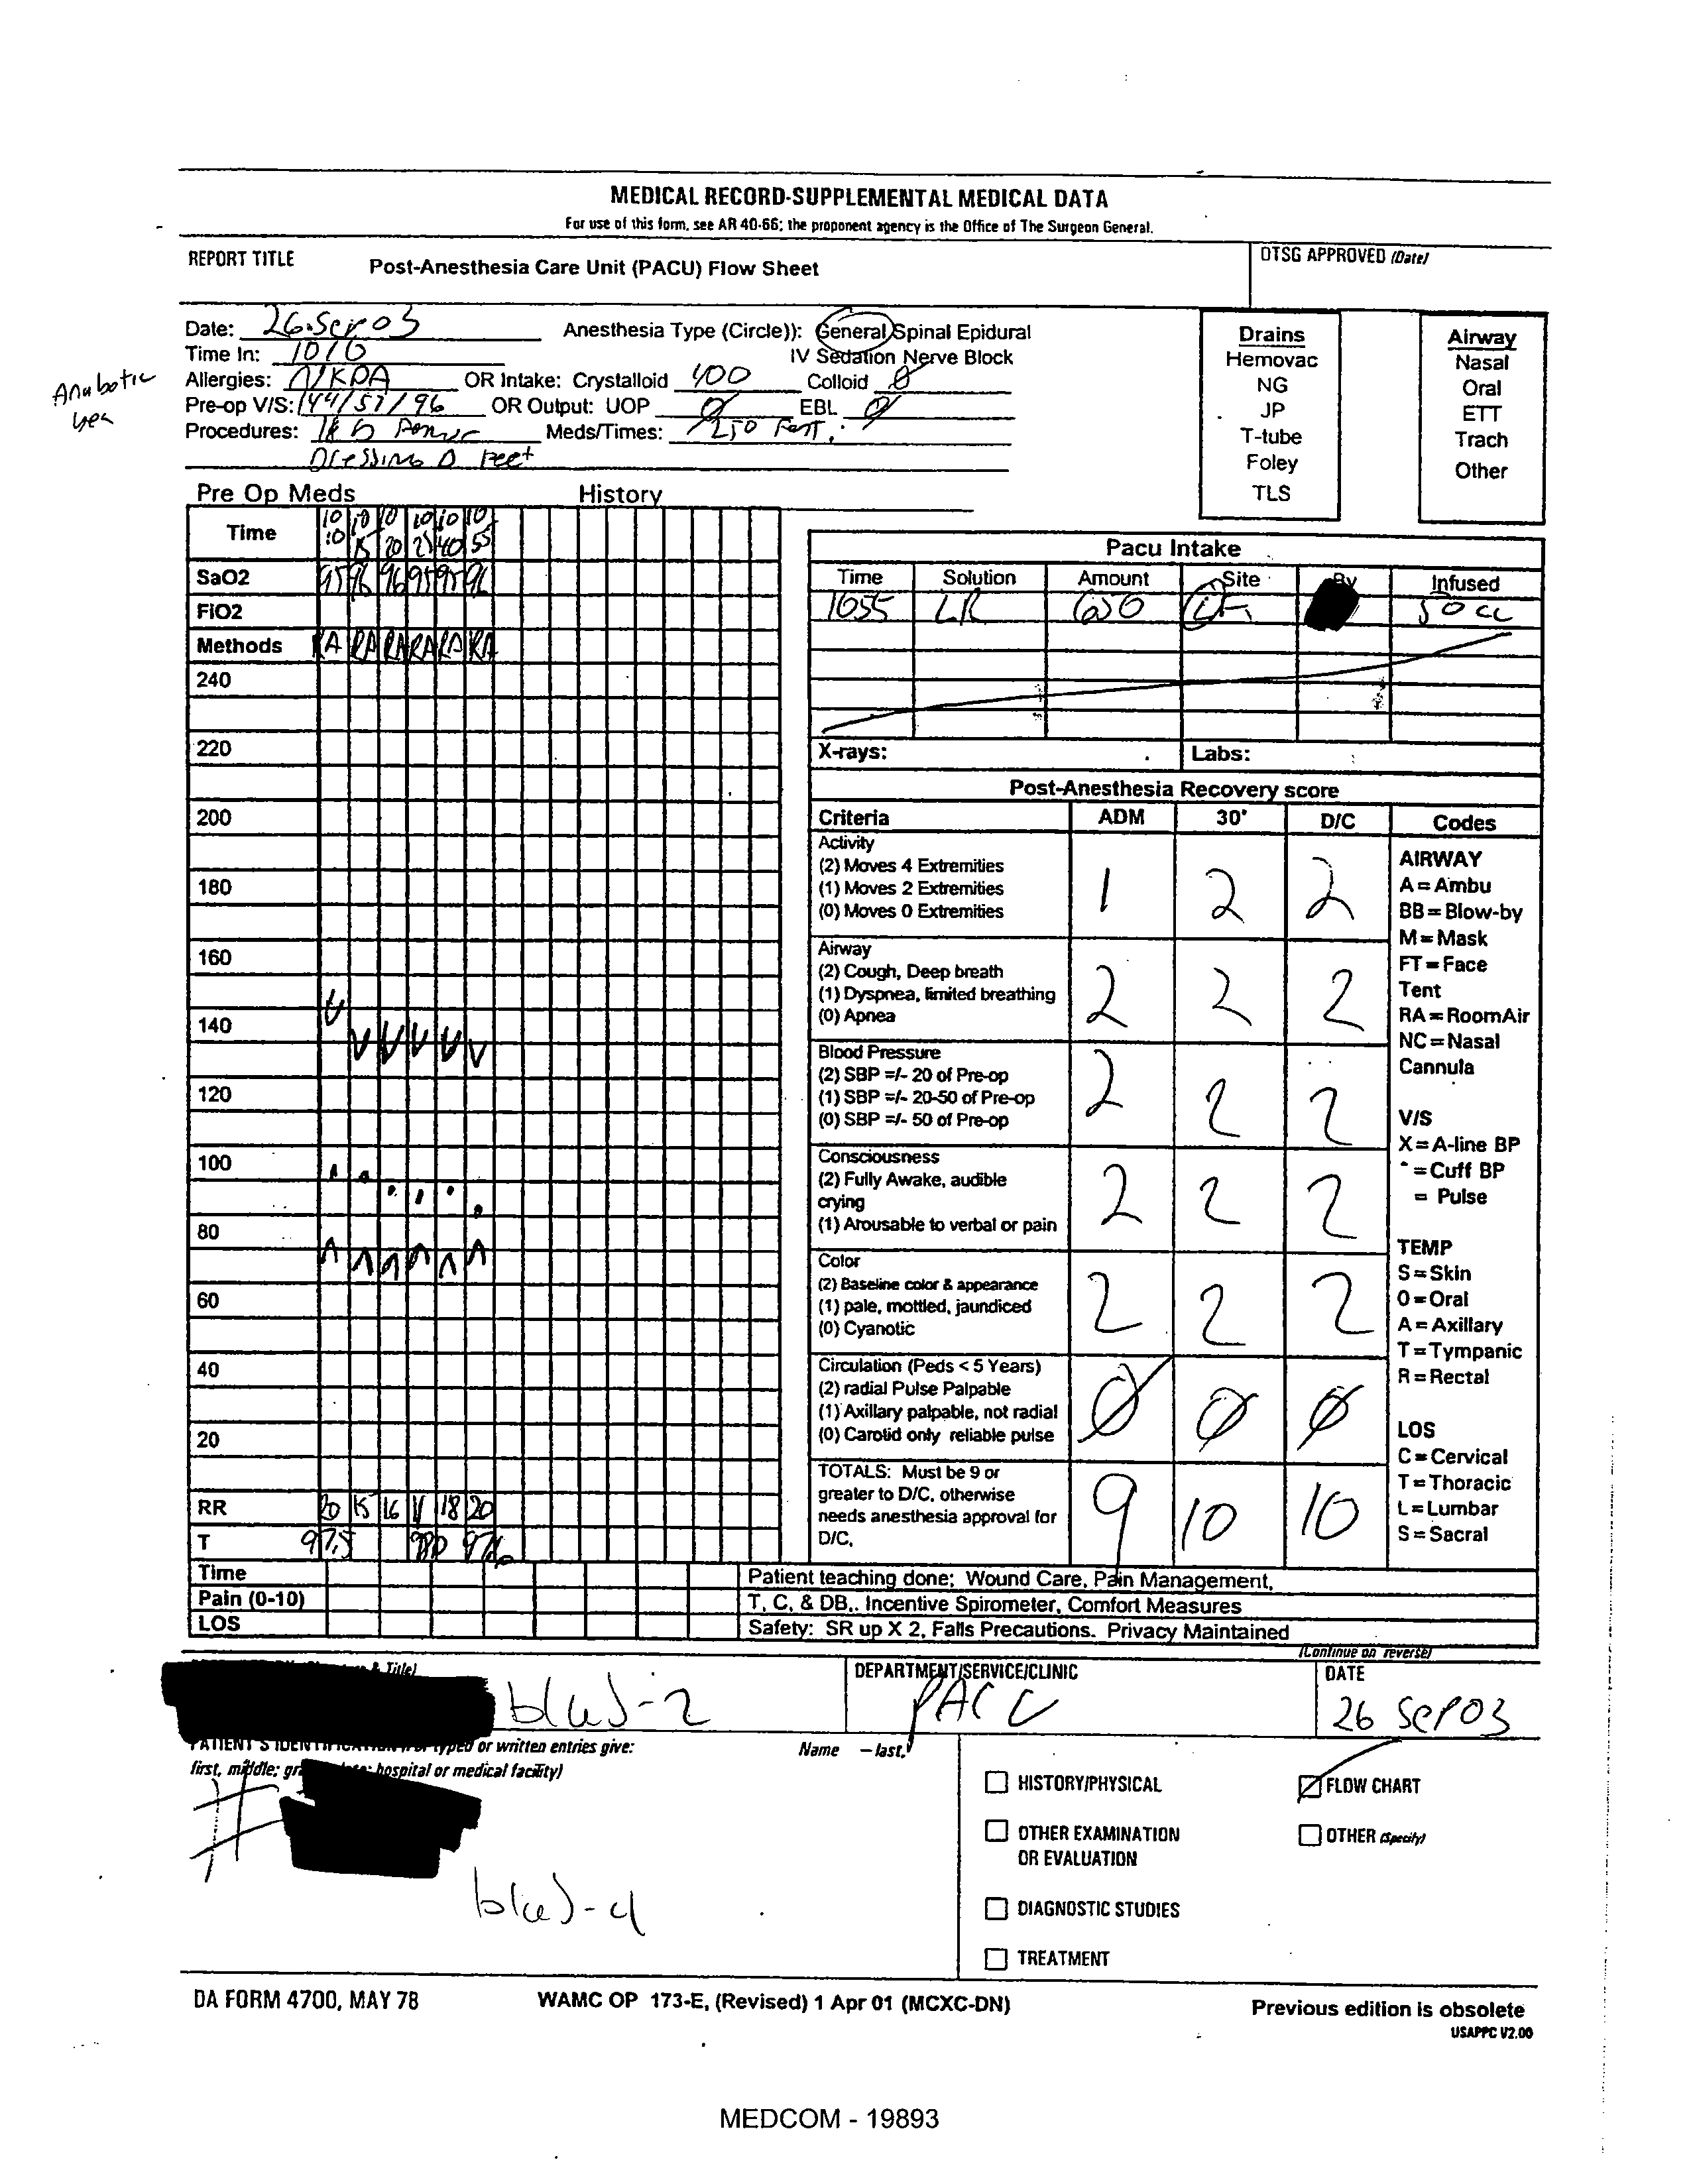 MEDICAL RECORD-SUPPLEMENTAL MEDICAL DATA
For use of this form, see AR 40-66; the proponent agency is the Office of The Surgeon General.
REPORT TITLE
Post-Anesthesia Care Unit (PACU) Flow Sheet
OTSG APPROVED (Date)
Date: 26 Sep 03
Anesthesia Type (Circle)): General Spinal Epidural
Time In: 1010
IV Sedation Nerve Block
Allergies: NKDA
OR Intake: Crystalloid 400 Colloid 0
Pre-op V/S: 144/57/96
OR Output: UOP 0 EBL 0
Procedures: I & D
Meds/Times: 250 Fent.
Dressing Feet
Drains
Hemovac
NG
JP
T-tube
Foley
TLS
Airway
Nasal
Oral
ETT
Trach
Other
Pre Op Meds History
Time 10:10 10 15 10 20 10 25 10 40 10 55
SaO2 95 96 96 95 95 96
FiO2
Methods RA RA RA RA RA RA
240
220
200
180
160
140
120
100
80
60
40
20
RR 20 15 16 18 20
T 97.5 980 97.6
Time
Pain (0-10)
LOS
Pacu Intake
Time Solution Amount Site By Infused
1055 LR 650 50 cc
X-rays: Labs:
Post-Anesthesia Recovery score
Criteria ADM 30' D/C Codes
Activity
(2) Moves 4 Extremities
(1) Moves 2 Extremities
(0) Moves 0 Extremities
1 2 2
Airway
(2) Cough, Deep breath
(1) Dyspnea, limited breathing
(0) Apnea
2 2 2
Blood Pressure
(2) SBP =/- 20 of Pre-op
(1) SBP =/- 20-50 of Pre-op
(0) SBP =/- 50 of Pre-op
2 2 2
Consciousness
(2) Fully Awake, audible
crying
(1) Arousable to verbal or pain
2 2 2
Color
(2) Baseline color & appearance
(1) pale, mottled, jaundiced
(0) Cyanotic
2 2 2
Circulation (Peds < 5 Years)
(2) radial Pulse Palpable
(1) Axillary palpable, not radial
(0) Carotid only reliable pulse
0 0 0
TOTALS: Must be 9 or
greater to D/C, otherwise
needs anesthesia approval for
D/C.
9 10 10
AIRWAY
A = Ambu
BB = Blow-by
M = Mask
FT = Face
Tent
RA = RoomAir
NC = Nasal
Cannula
V/S
X = A-line BP
ˆ = Cuff BP
= Pulse
TEMP
S = Skin
O = Oral
A = Axillary
T = Tympanic
R = Rectal
LOS
C = Cervical
T = Thoracic
L = Lumbar
S = Sacral
Patient teaching done; Wound Care, Pain Management,
T, C, & DB,. Incentive Spirometer, Comfort Measures
Safety: SR up X 2, Falls Precautions. Privacy Maintained
(Continue on reverse)
& Title)
b(6)-2
DEPARTMENT/SERVICE/CLINIC
PACU
DATE
26 Sep 03
PATIENT'S IDENTIFICATION typed or written entries give: Name – last,
first, middle; hospital or medical facility)
#
b(6)-4
HISTORY/PHYSICAL
FLOW CHART
OTHER EXAMINATION
OR EVALUATION
OTHER (Specify)
DIAGNOSTIC STUDIES
TREATMENT
DA FORM 4700, MAY 78
WAMC OP 173-E, (Revised) 1 Apr 01 (MCXC-DN)
Previous edition is obsolete
USAPPC V2.00
MEDCOM - 19893